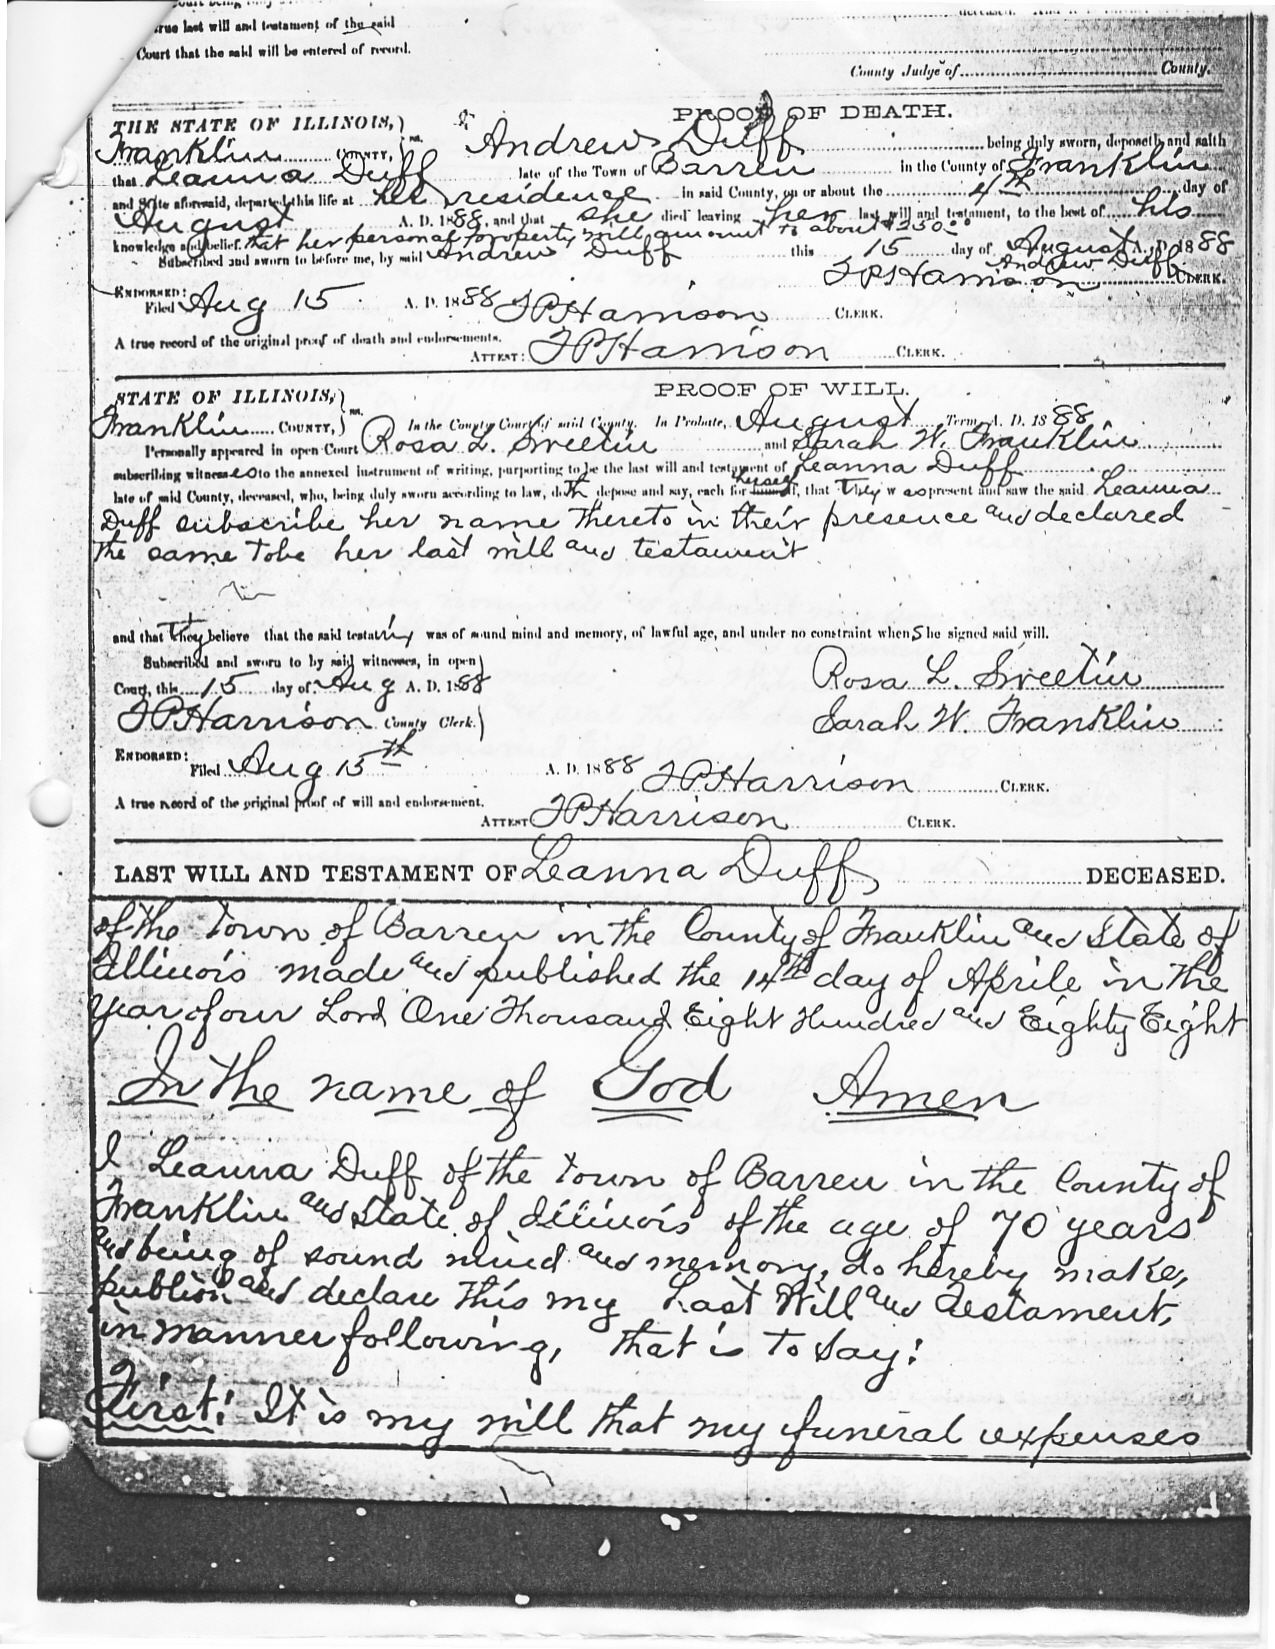 true last will and testament of the said
Court that the said will be entered of record.
County Judge of County.
THE STATE OF ILLINOIS,) PROOF OF DEATH.
Franklin COUNTY, ss. Andrew Duff being duly sworn, deposeth and saith
that Leanna Duff late of the Town of Barren in the County of Franklin
and State aforesaid, departed this life at her residence in said County, on or about the 4th day of
August A. D. 1888, and that she died leaving her last will and testament, to the best of his
knowledge and belief. that her personal property will amount to about $250.00
Subscribed and sworn to before me, by said Andrew Duff this 15 day of August A. D. 1888
Andrew Duff
T P Harrison CLERK.
ENDORSED:
Filed Aug 15 A. D. 1888 T P Harrison CLERK.
A true record of the original proof of death and endorsements.
ATTEST: T P Harrison CLERK.
STATE OF ILLINOIS,) PROOF OF WILL.
Franklin COUNTY, ss. In the County Court of said County. In Probate, August Term A. D. 1888
Personally appeared in open Court Rosa L. Sweetin and Sarah W. Franklin
subscribing witnesses to the annexed instrument of writing, purporting to be the last will and testament of Leanna Duff
late of said County, deceased, who, being duly sworn according to law, doth depose and say, each for herself himself, that they was present and saw the said Leanna
Duff subscribe her name thereto in their presence and declared
the same to be her last will and testament
and that they believe that the said testatrix was of sound mind and memory, of lawful age, and under no constraint when She signed said will.
Subscribed and sworn to by said witnesses, in open
Court, this 15 day of Aug A. D. 1888 Rosa L. Sweetin
T P Harrison County Clerk. Sarah W. Franklin
ENDORSED:
Filed Aug 15th A. D. 1888 T P Harrison CLERK.
A true record of the original proof of will and endorsement.
ATTEST T P Harrison CLERK.
LAST WILL AND TESTAMENT OF Leanna Duff DECEASED.
of the Town of Barren in the County of Franklin and State of
Illinois made and published the 14th day of Aprile in the
year of our Lord One Thousand Eight Hundred and Eighty Eight
In the name of God Amen
I Leanna Duff of the Town of Barren in the County of
Franklin and State of Illinois of the age of 70 years
and being of sound mind and memory, do hereby make,
publish and declare this my Last Will and Testament,
in manner following, that is to say:
First: It is my will that my funeral expenses